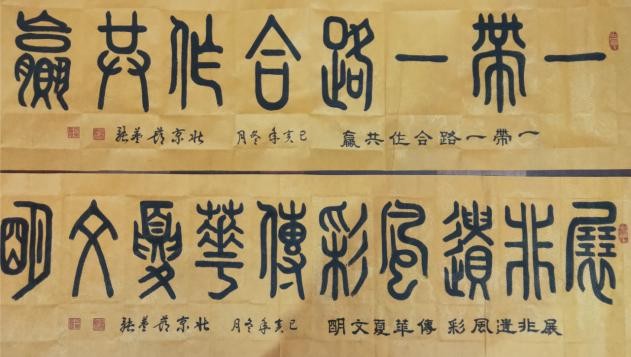 一帶一路合作共贏
一帶一路合作共贏 己亥年冬月
展非遺風彩傳華夏文明
展非遺風彩 傳華夏文明 己亥年冬月